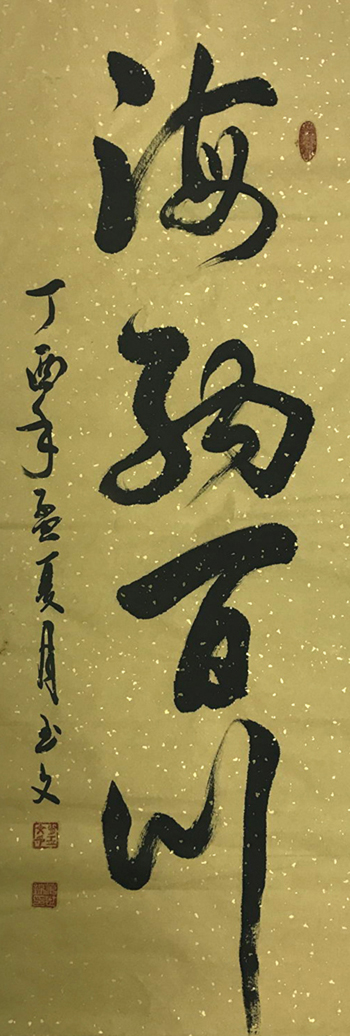 海纳百川
丁酉年孟夏月玉文